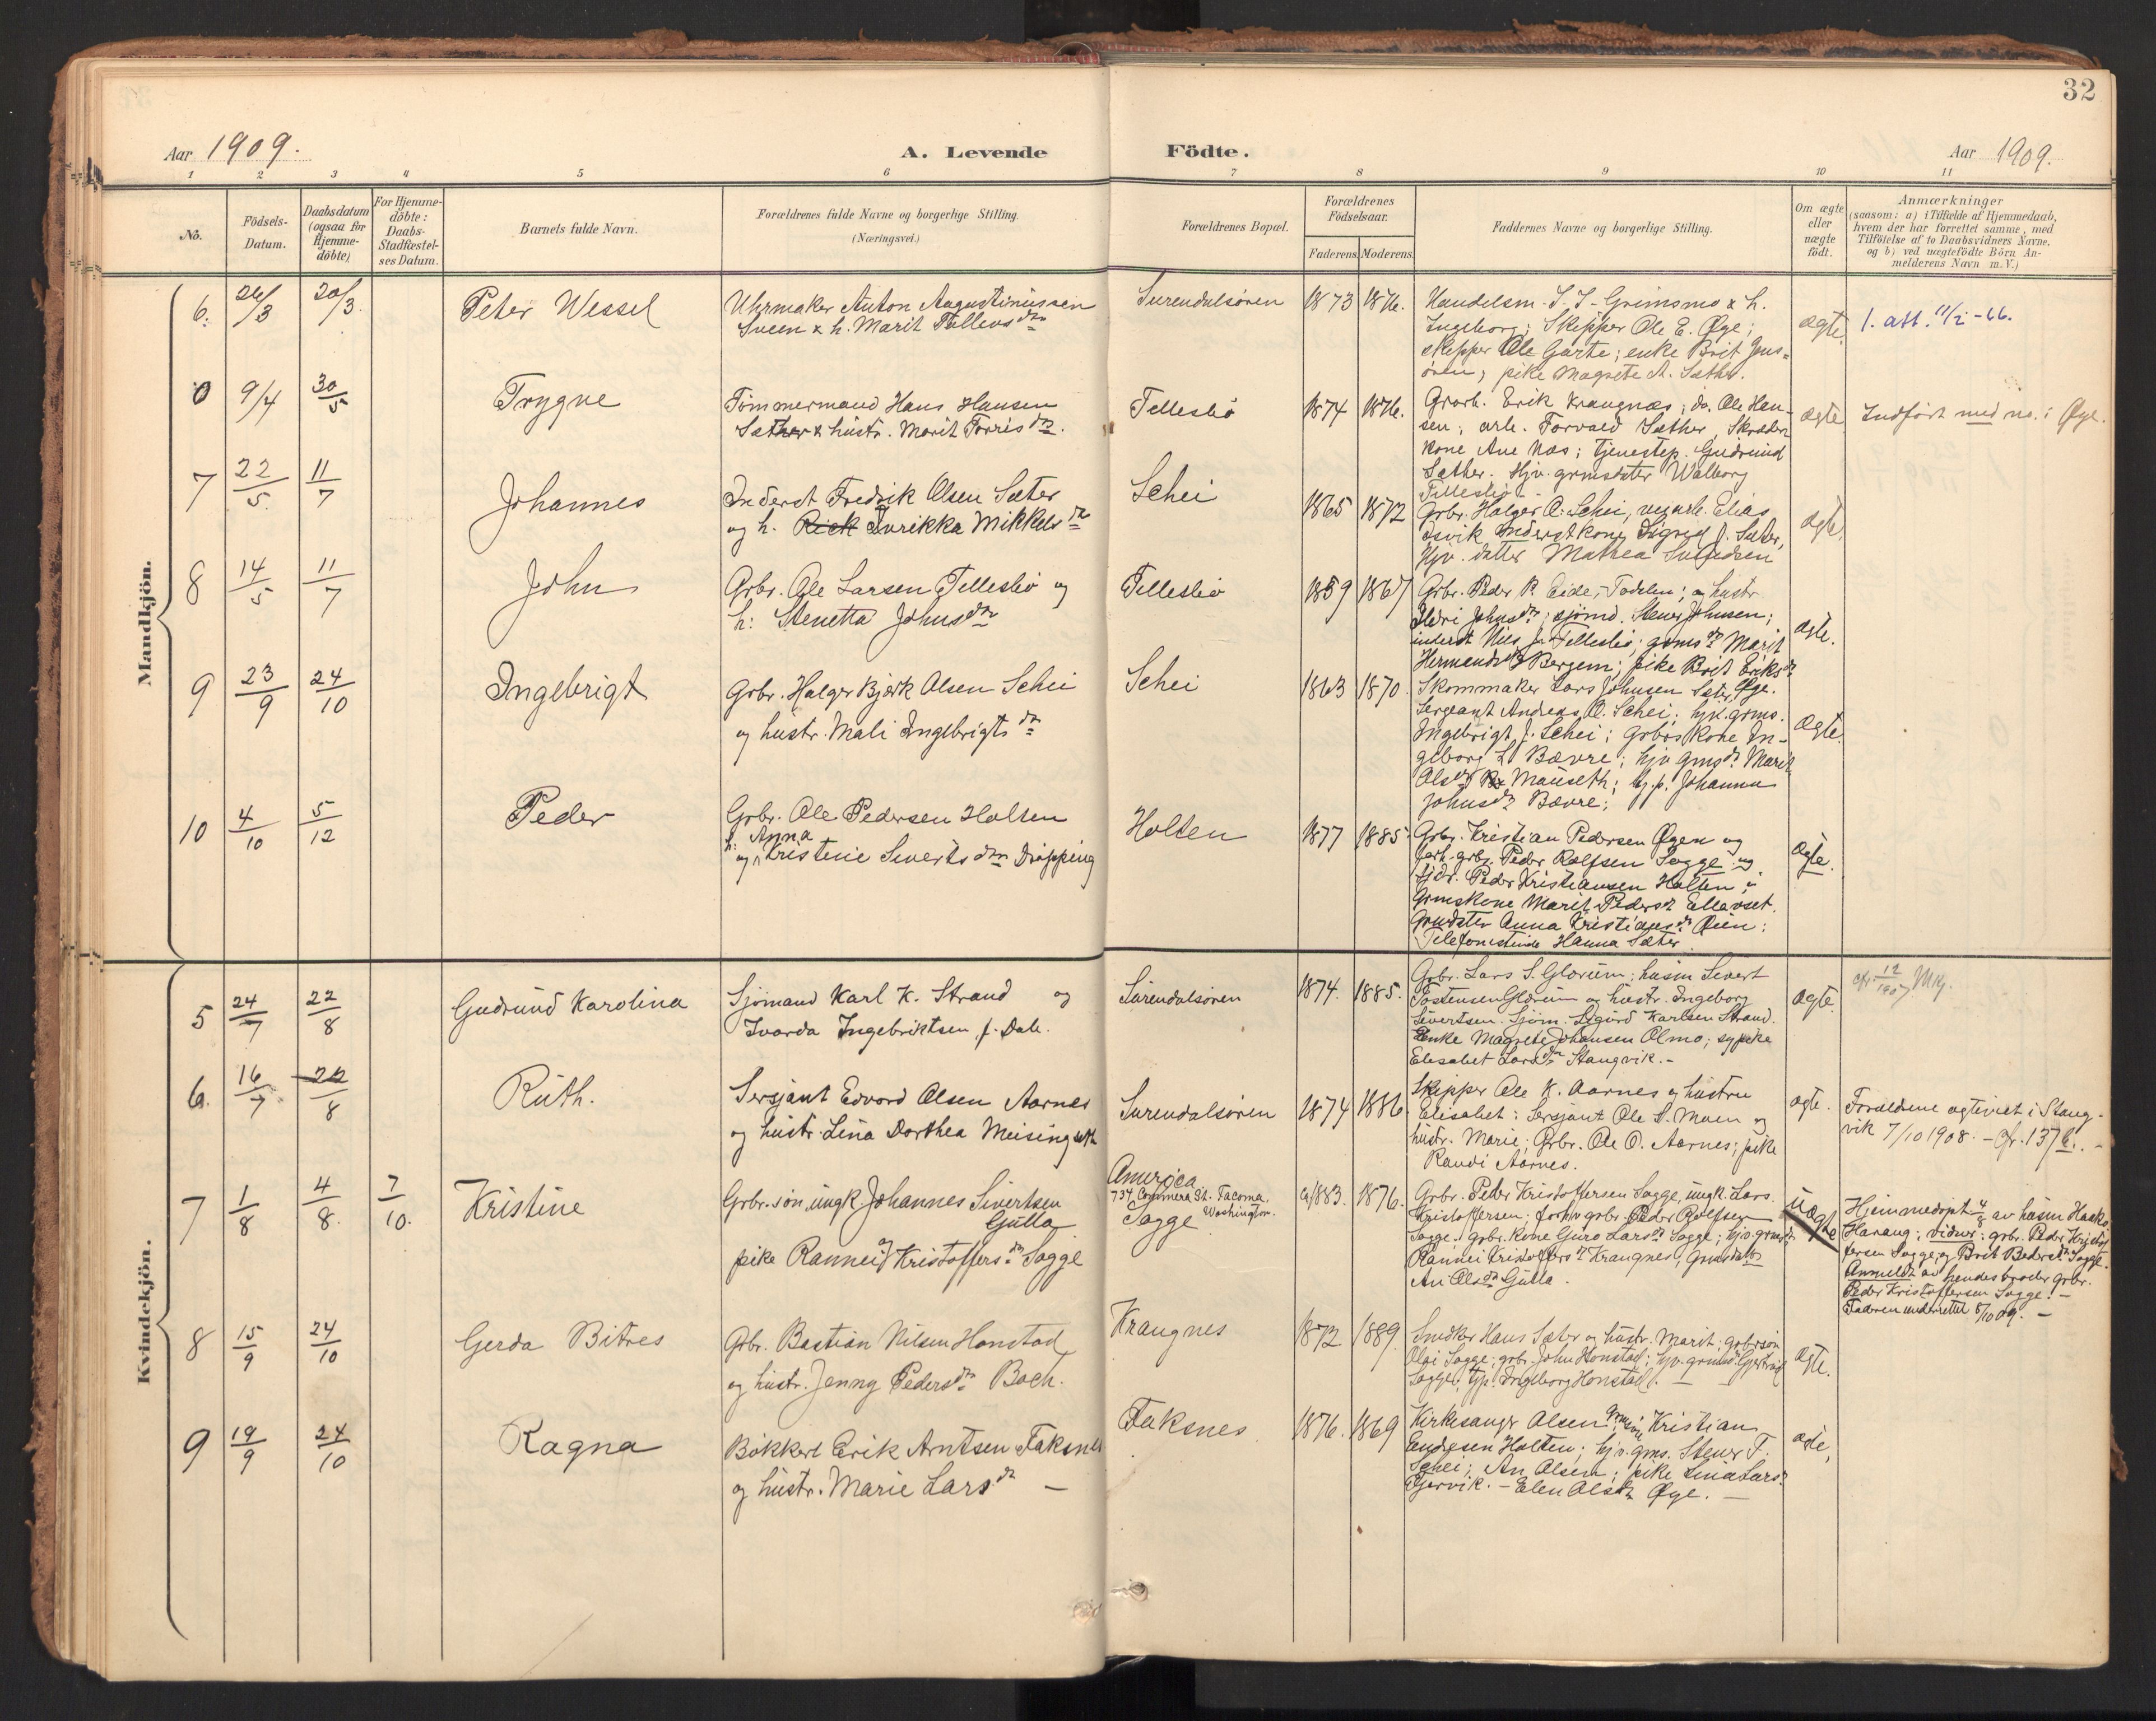 32
Aar 1909.
A. Levende
Födte.
Aar 1909.
1 2 3 4 5 6 7 8 9 10 11
No.
Födsels-
Datum.
Daabsdatum
(ogsaa for
Hjemme-
döbte)
For Hjemme-
döbte:
Daabs-
Stadfæstel-
ses Datum.
Barnets fulde Navn.
Forældrenes fulde Navne og borgerlige Stilling.
(Næringsvei.)
Forældrenes Bopæl.
Forældrenes
Födselsaar.
Faderens Moderens
Faddernes Navne og borgerlige Stilling.
Om ægte
eller
uægte
födt.
Anmærkninger
(saasom: a) i Tilfælde af Hjemmedaab,
hvem der har forrettet samme, med
Tilföielse af to Daabsvidners Navne.
og b) ved uægtefödte Börn An-
melderens Navn m.V.)
Mandkjön.
6. 20/3. Peter Wessel
Uhrmaker Anton Augustinussen
Sveen & h. Marit Tellevsdtr
Surendalsøren 1873 1876.
Handelsm. I. I. Grimsmo & h.
Ingeborg; Skipper Ole E. Øye;
skipper Ole Garte; enke Brit Jens-
øren; pike Magrete A. Sæther.
ægte.
1. att. 11/2-66.
0 9/4 30/5 Trygve
Tømmermand Hans Hansen
Sæther & hustr. Marit Torrisdtr.
Tellesbø 1874 1876.
Grarb. Erik Krangnæs; do. Ole Han-
sen; arb. Torvald Sæther, Skrædder
kone Ane Næs; tjenestep. Gudrund
Sæther. Hjv. grmsdatter Walborg
Tellesbø.
ægte
Indført med no. i Øye.
7 22/5. 11/7 Johannes
Inderst Fredrik Olsen Sæter
og h. Rick Ivrikka Mikkelsdtr
Schei 1865 1872
Grbr. Holger O. Schei, veiarb. Elias
Isvik Inderstkone Sigrid J. Sæter,
Hjv. datter Mathea Svendsen
ægte.
8 14/5 11/7 John
Grbr. Ole Larsen Tellesbø og
h: Stenetta Johnsdtr
Tellesbø 1859 1867
Grbr. Peder P. Eide, Todalen; og hustr
Ildri Johnsdtr; sjømd. Stener Johnsen;
inderst Nils J. Tellesbø; grmsdtr Marit
Hermandsdtr Bergem; pike Brit Eriksdtr
Øye.
ægte.
9 23/9 24/10 Ingebrigt
Grbr. Holger Bjerk Olsen Schei
og hustr. Mali Ingebrigtsdtr
Schei 1863 1870.
Skommaker Lars Johnsen Sæter,
Sergeant Andreas O. Schei; hjv. grms.
Ingebrigt J. Schei; Grbrs kone In-
geborg L. Bævre; hjv gmsdtr Marit
Olsdtr Mauseth; tj.p. Johanna
Johnsdtr Bævre;
ægte.
10 4/10 5/12 Peder
Grbr. Ole Pedersen Holten
og h: Anna Kristine Sivertsdtr Drøpping
Holten 1877 1885.
Grbr. Kristian Pedersen Øyen og
forh. grbr. Peder Rolfsen Sogge og
tjdr. Peder Kristiansen Holten;
Grmskone Marit Pedersdtr Ellevset.
Grmdatter Anna Kristiansdtr Øien;
Telefonistinde Hanna Sæter.
ægte.
Kvindekjön.
5 24/7 22/8 Gudrund Karolina
Sjömand Karl K. Strand og
Ivarda Ingebriktsen f. Dale.
Surendalsøren 1874. 1885.
Grbr. Lars S. Glærum; husm Sivert
Tostensen Glærum og hustr. Ingeborg
Sivertsen. Sjøm. Sigurd Karlsen Strand.
Enke Magrete Johansen Olmo; sypike
Elisabet Larsdtr Stangvik. -
ægte
cfr. 12/1907 Mkj.
6. 16/7 22/8 Ruth.
Sersjant Edvard Olsen Aarnes
og hustr. Lina Dorthea Meisingseth
Surendalsøren 1874 1886
Skipper Ole K. Aarnes og hustru
Elisabet; Sersjant Ole S. Moen og
hustr. Marie; Grbr. Ole O. Aarnes; pike
Randi Aarnes.
ægte.
Forældrene egteviet i Stang-
vik 7/10 1908. - cfr. 137 b. -
7 1/8 4/8. 7/10. Kristine
Grbr.søn, ungk. Johannes Sivertsen
Gulla
og
pike Rannei Kristoffersdtr Sogge
America
734 Commerce St. Tacoma.
Washington.
Sogge
1883. 1876.
Grbr. Peder Kristoffersen Sogge, ungk. Lars
Kristoffersen; forhv grbr. Peder Rolfsen
Sogge. Grbr. Kone Guro Larsdtr Sogge; hjv. grmsdtr
Rannei Kristoffersdtr Krangnes; Grmsdatter
An Olsdtr Gulla.
uægte
Hjemmedøpt 4/8 av husm Haako
Harang; vidner: grbr. Peder Kristof-
fersen Sogge og Brit Pedersdtr Sogge.
Anmeldt av hendes broder grbr.
Peder Kristoffersen Sogge. -
Faderen underrettet 8/10 09. -
8 15/9 24/10 Gerda Bitres
Grbr. Bastian Nilsen Honstad
og hustr. Jenny Pedersdtr Boch.
Krangnes 1872 1889.
Snedker Hans Sæter og hustr. Marit; grbrsøn
Olai Sogge; grbr. John Honstad; hjv. grmsd. Gjertrud
Sogge; tjp. Ingeborg Honstad. -
ægte.
9 19/9 24/10 Ragna
Bøkkere Erik Arntsen Faksnes
og hustr. Marie Larsdtr -
Faksnes 1876. 1869
Kirkesanger Olsen, grmsøn Kristian
Endresen Holten; hjv. gms. Stener T.
Schei; An Olsen; pike Lina Larsdtr
Gjervik. - Elen Olsdtr Øye. -
ægte,